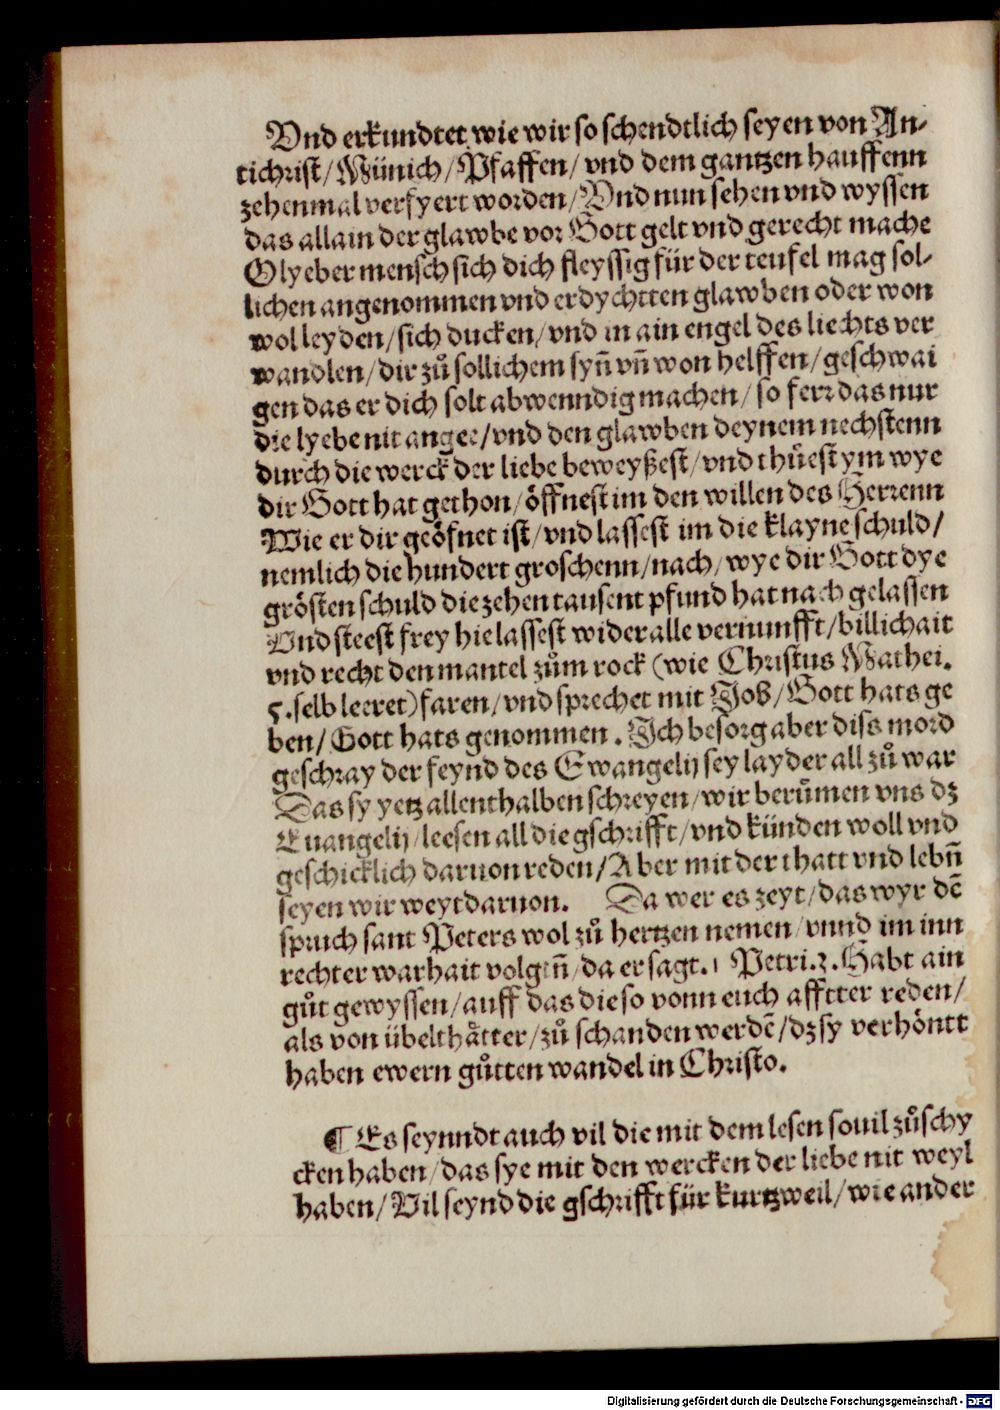 Vnd erkundtet wie wir so schendtlich seyen von An-
tichrist/Münich/Pfaffen/vnd dem gantzen hauffenn
zehenmal verfyert worden/Vnd nun sehen vnd wyssen
das allain der glawbe vor Gott gelt vnd gerecht mache
O lyeber mensch sich dich fleyssig für der teufel mag sol-
lichen angenommen vnd erdychtten glawben oder won
wol leyden/sich ducken/vnd in ain engel des liechts ver
wandlen/dir zů sollichem syn̄ vn̄ won helffen/geschwai
gen das er dich solt abwenndig machen/so ferr das nur
die lyebe nit angee/vnd den glawben deynem nechstenn
durch die werck der liebe beweyßest/vnd thůest ym wye
dir Gott hat gethon/öffnest im den willen des Herrenn
Wie er dir geöfnet ist/vnd lassest im die klayne schuld/
nemlich die hundert groschenn/nach/wye dir Gott dye
grösten schuld die zehen tausent pfund hat nach gelassen
Vnd steest frey hie lassest wider alle vernunfft/billichait
vnd recht den mantel zům rock (wie Christus Mathei.
5.selb leeret)faren/vnd sprechet mit Job/Gott hats ge
ben/Gott hats genommen. Ich besorg aber diss mord
geschray der feynd des Ewangelij sey layder all zů war
Das sy yetz allenthalben schreyen/wir berůmen vns dz
Euangelij/leesen all die gschrifft/vnd künden woll vnd
geschicklich daruon reden/Aber mit der thatt vnd lebn̄
seyen wir weyt daruon. Da wer es zeyt/das wyr dē
spruch sant Peters wol zů hertzen nemen/vnnd im inn
rechter warhait volgen̄/da er sagt.1 Petri.2.Habt ain
gůt gewyssen/auff das die so vonn euch afftter reden/
als von übelthåtter/zů schanden werdē/dz sy verhöntt
haben ewern gůtten wandel in Christo.
¶ Es seynndt auch vil die mit dem lesen souil zůschy
cken haben/das sye mit den wercken der liebe nit weyl
haben/Vil seynd die gschrifft für kurtzweil/wie ander
Digitalisierung gefördert durch die Deutsche Forschungsgemeinschaft - DFG